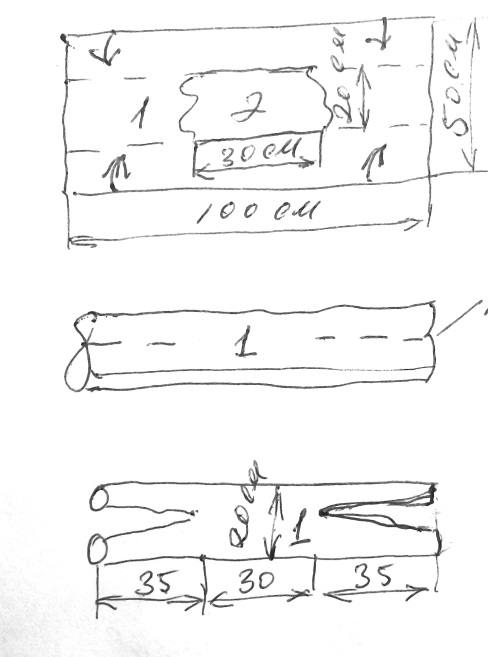 1
2
20 см
50 см
30 см
100 см
1
20 см
1
35
30
35